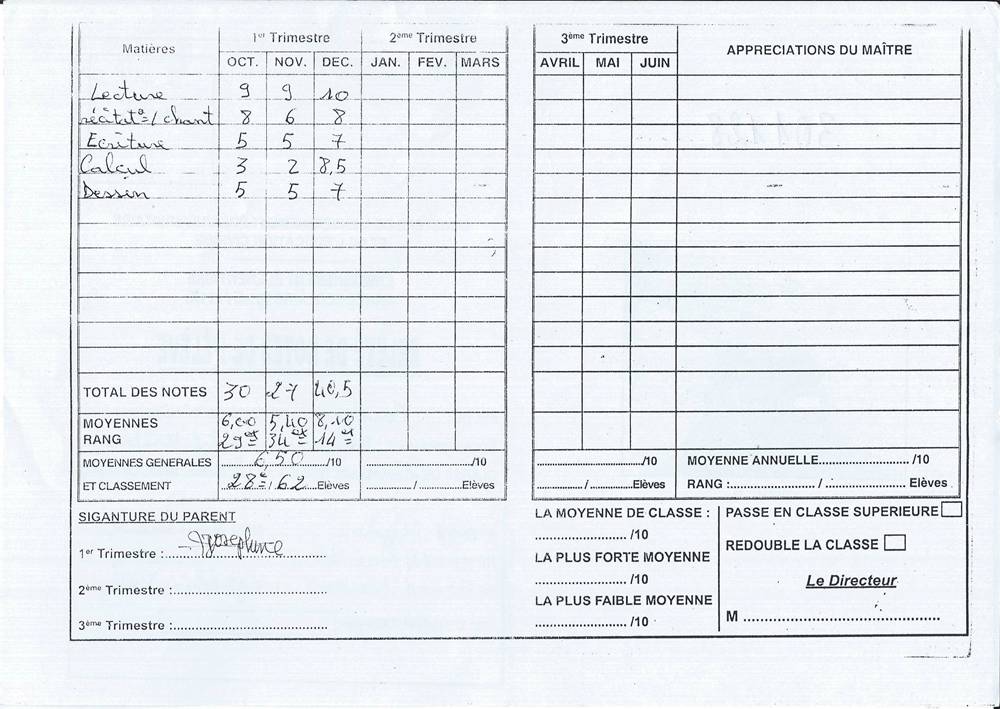 Matières 1er Trimestre 2ème Trimestre 3ème Trimestre APPRECIATIONS DU MAÎTRE
OCT. NOV. DEC. JAN. FEV. MARS AVRIL MAI JUIN
Lecture 9 9 10
récitat°/ chant 8 6 8
Ecriture 5 5 7
Calcul 3 2 8,5
Dessin 5 5 7
TOTAL DES NOTES 30 27 40,5
MOYENNES 6,00 5,40 8,10
RANG 29e 34e 14e
MOYENNES GENERALES 6,50 /10 /10 /10 MOYENNE ANNUELLE /10
ET CLASSEMENT 28e / 62 Elèves / Elèves / Elèves RANG : / Elèves
SIGANTURE DU PARENT
1er Trimestre : Josephine
2ème Trimestre :
3ème Trimestre :
LA MOYENNE DE CLASSE :
/10
LA PLUS FORTE MOYENNE
/10
LA PLUS FAIBLE MOYENNE
/10
PASSE EN CLASSE SUPERIEURE
REDOUBLE LA CLASSE
Le Directeur
M